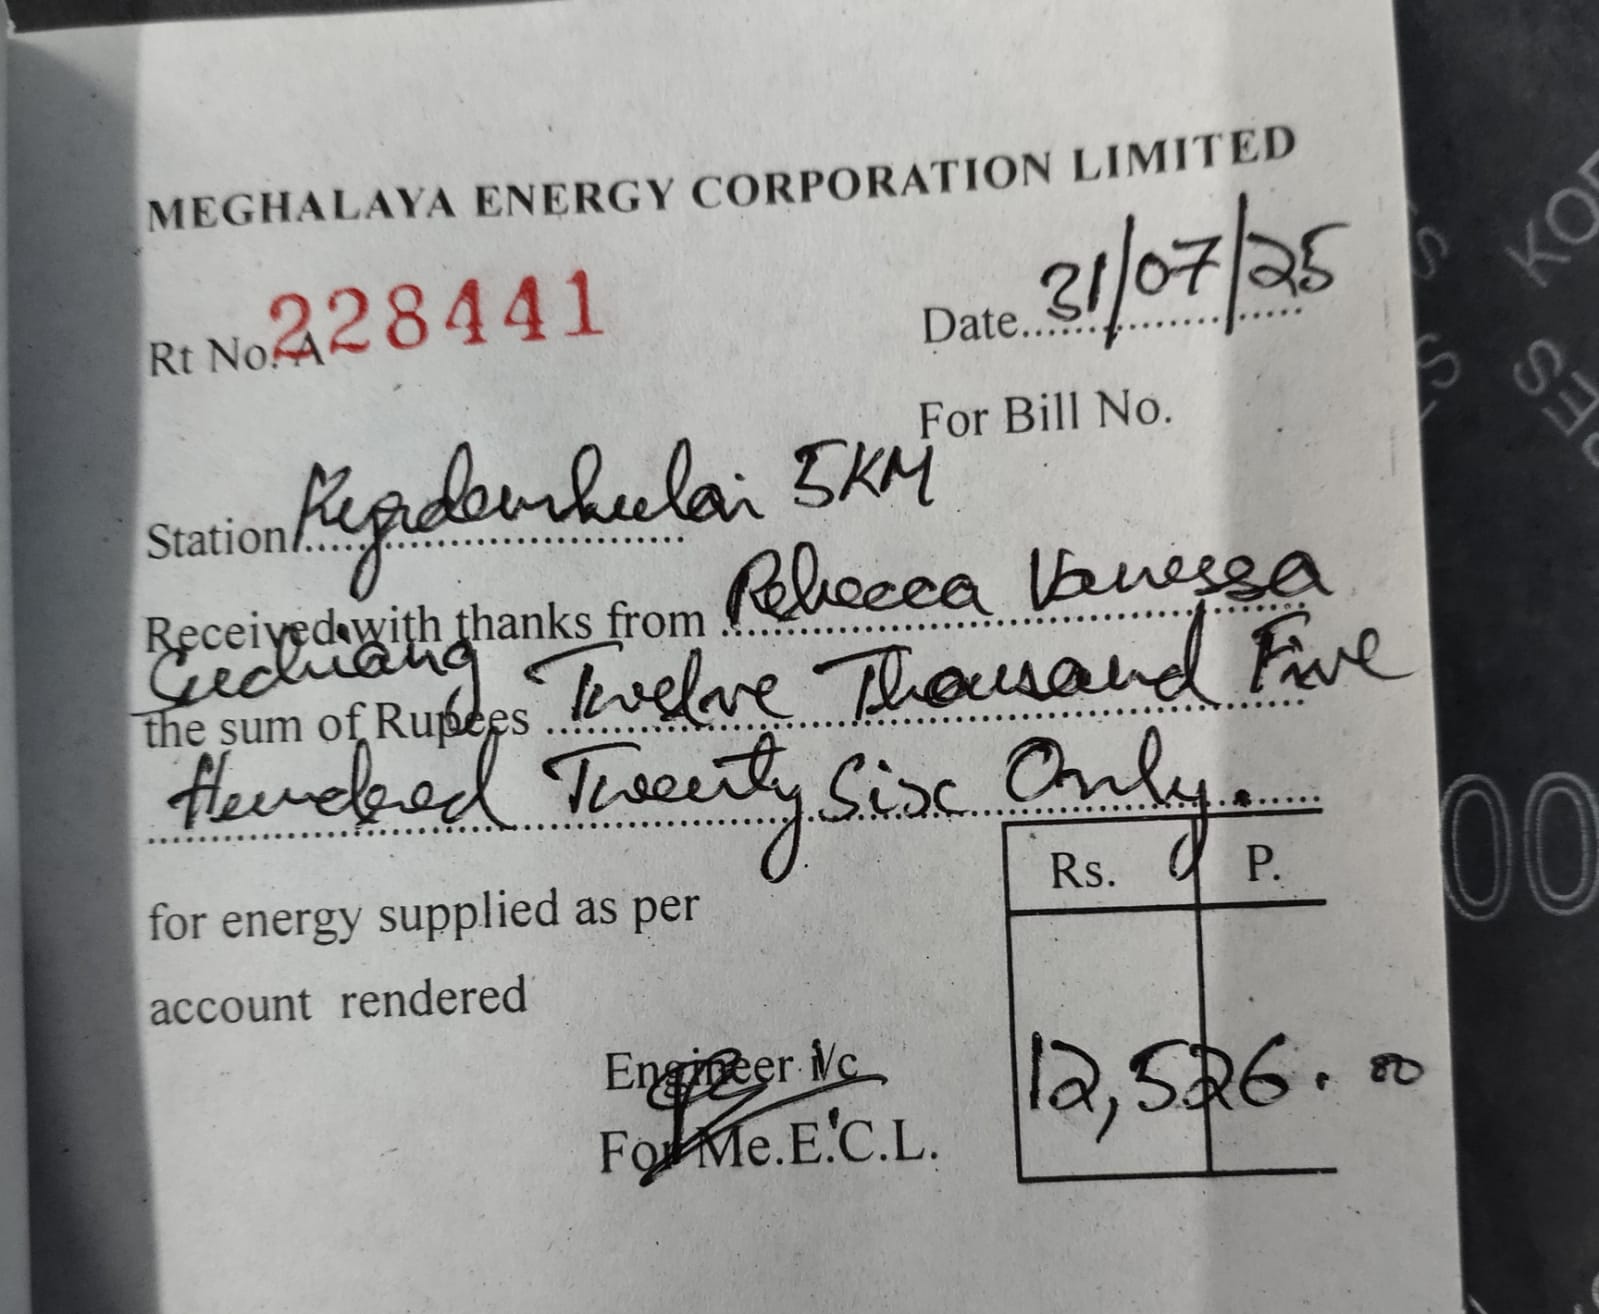 MEGHALAYA ENERGY CORPORATION LIMITED
Rt No. A 228441
Date 31/07/25
For Bill No.
Station Kyndemkulai 5KM
Received with thanks from Rebecca Vanessa
the sum of Rupees Twelve Thousand Five
Hundred Twenty Six Only.
Rs. P.
for energy supplied as per
account rendered
12,526.00
Engineer i/c
For Me.E.C.L.